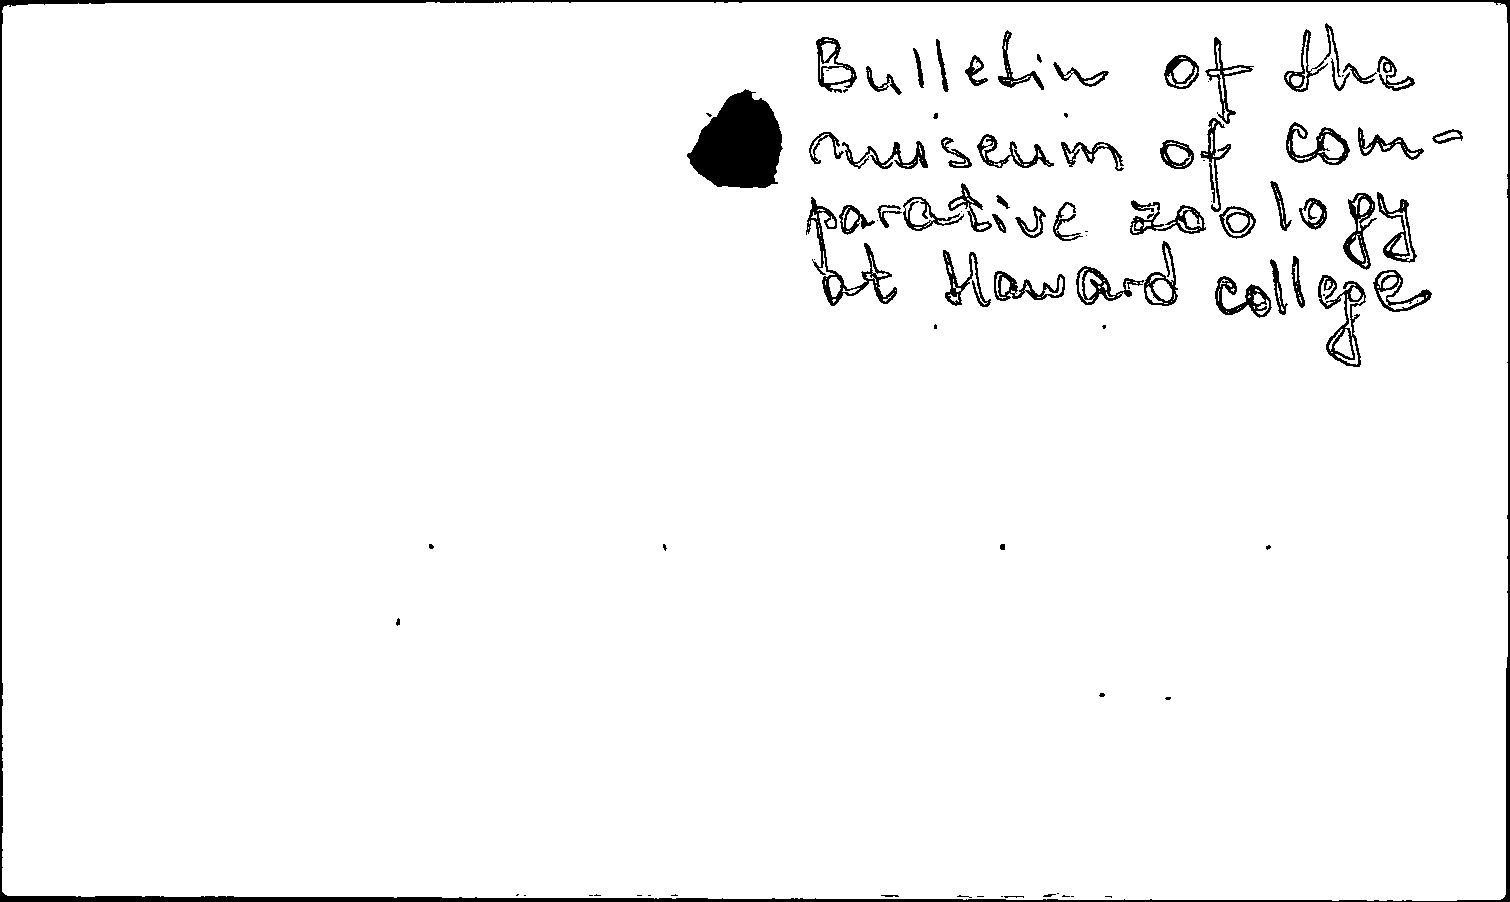 Bulletin of the
museum of com-
parative zoology
at Harvard college